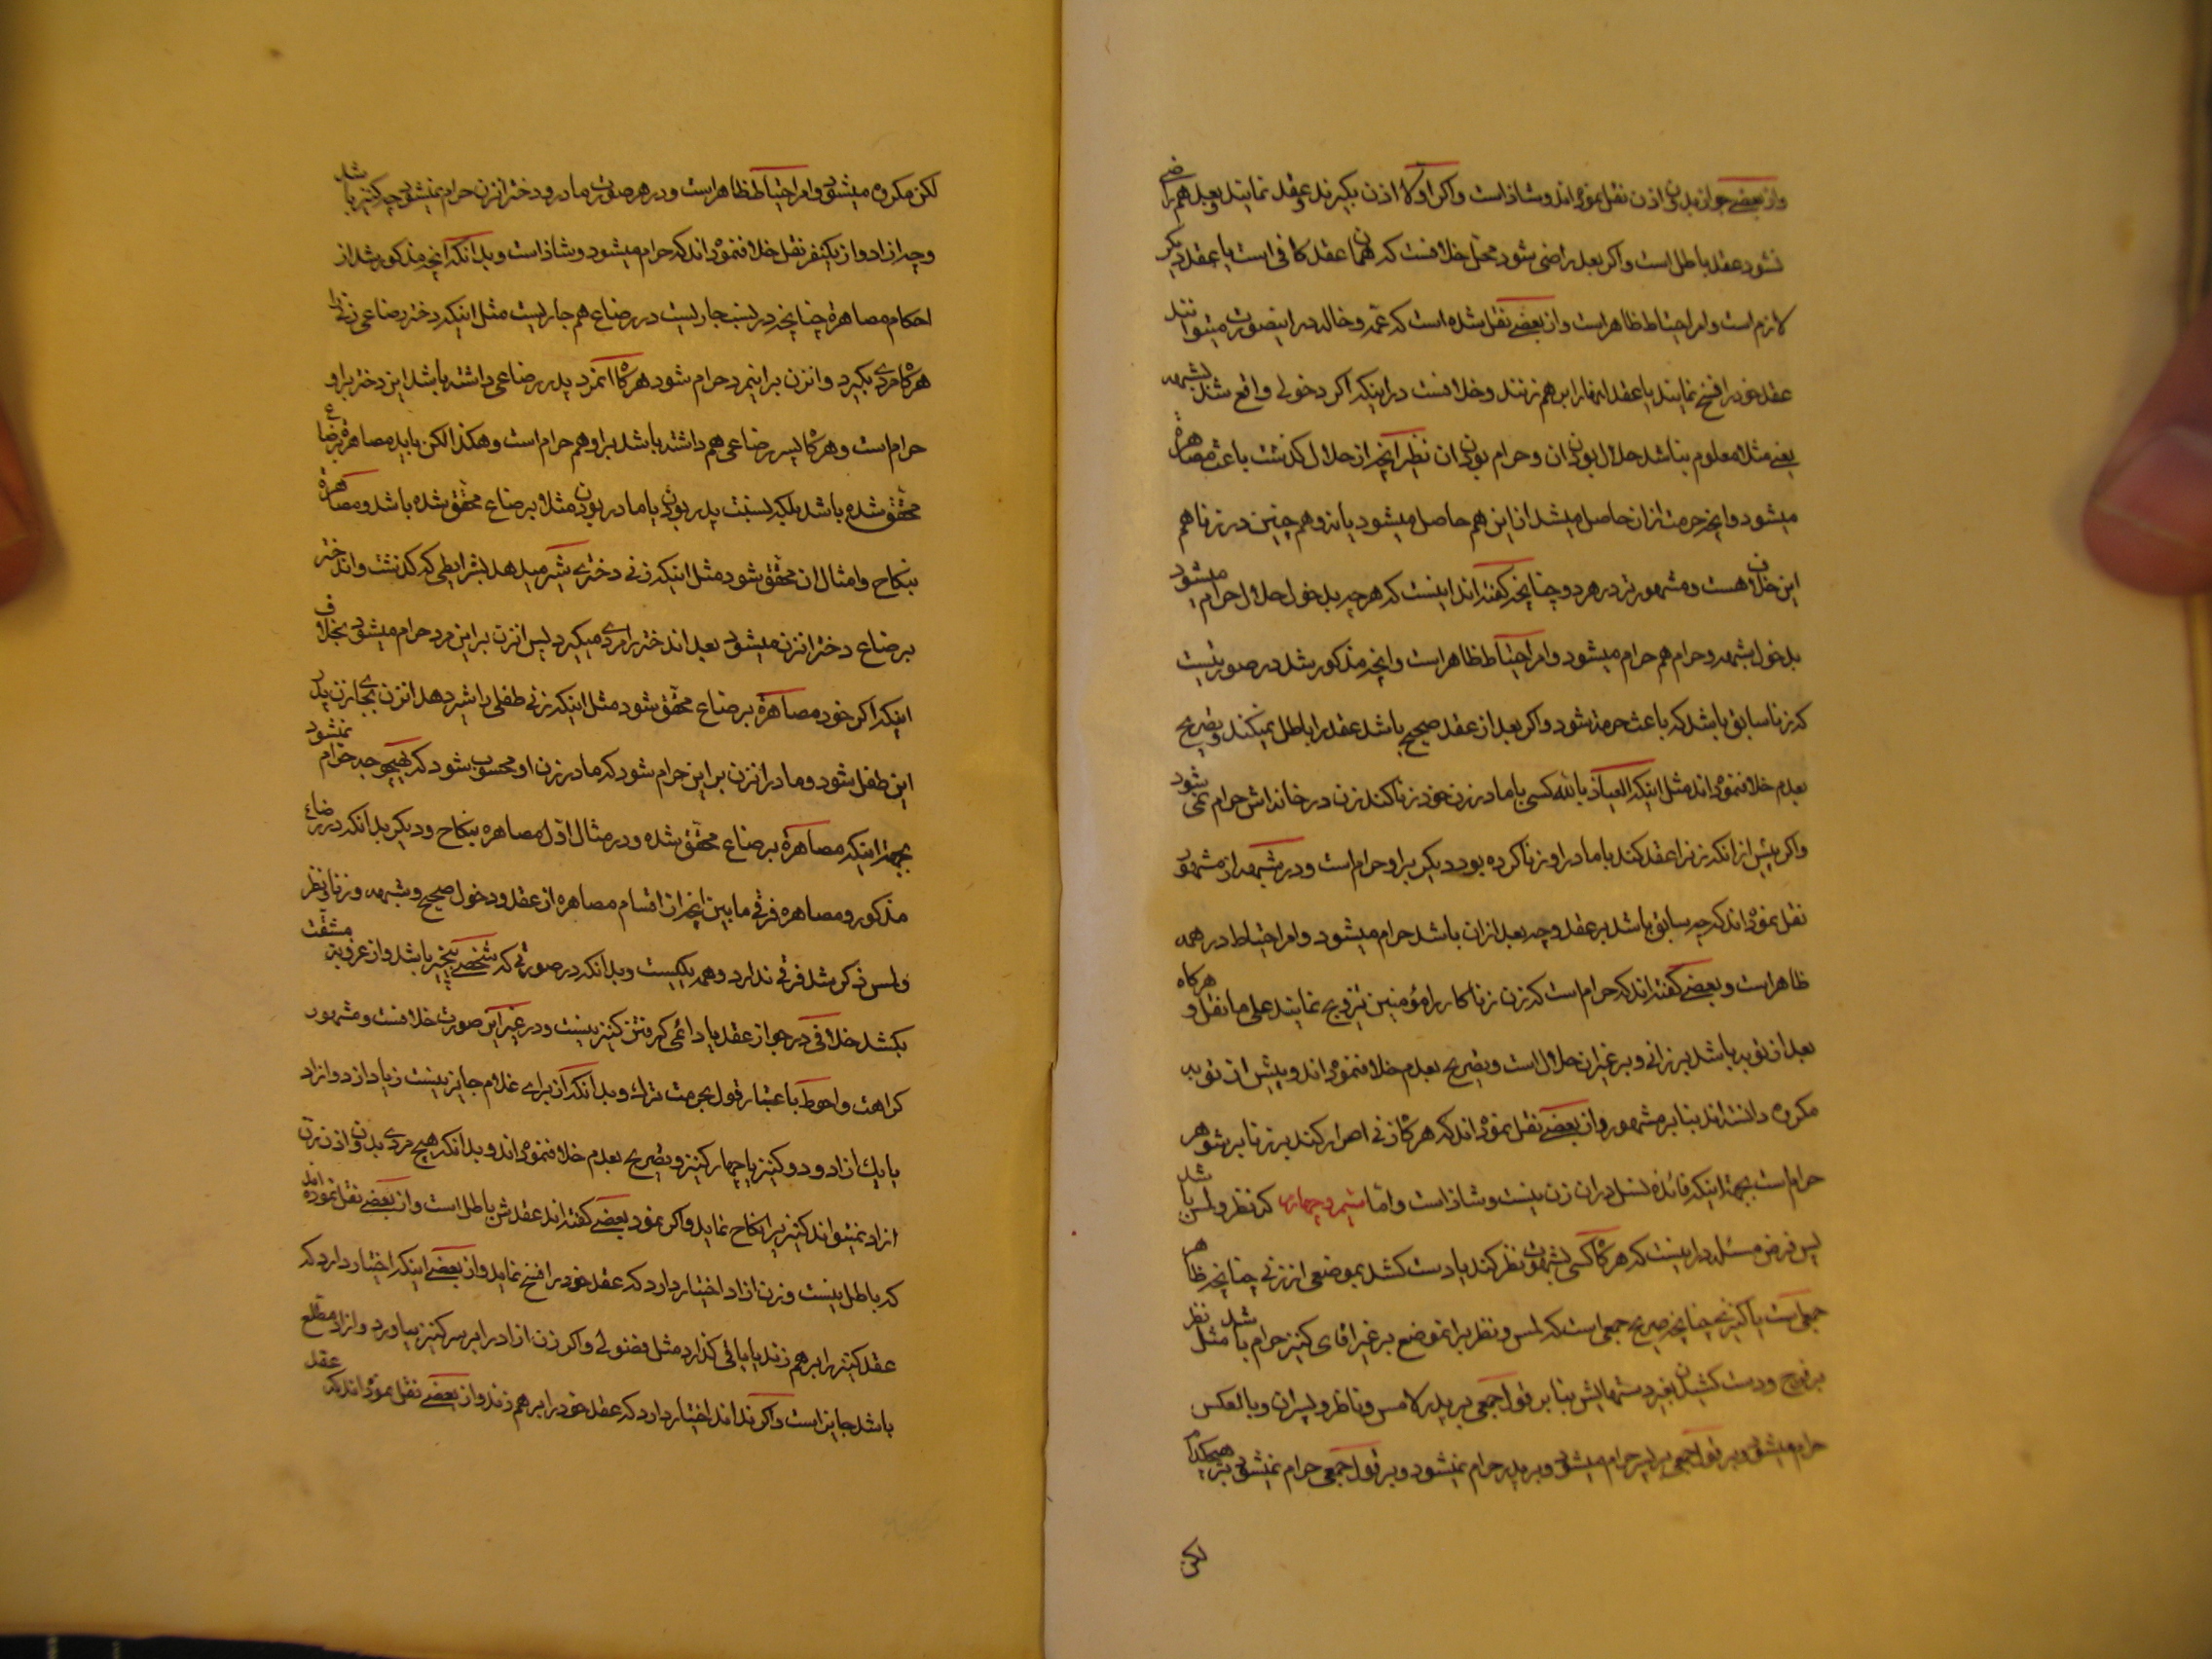 واز بعضے جواز بدون اذن نقل نموده‌اند و شاذ است واکر اولا اذن بکیرند وعقد نمایند وبعد هم راضے
نشود عقد باطل است واکر بعد راضی شود محل خلافست که همان عقد کافی است یا عقد دیکر
لازم است وامر احتیاط ظاهر است واز بعضے نقل شده است که عمه وخاله در اینصورت میتوانند
عقد خود را فسخ نمایند یا عقد اینها را بر هم زنند وخلافست در اینکه اکر دخولی واقع شد بشبهه
یعنے مثلا معلوم نباشد حلال بودن ان وحرام بودن ان نظیر انچه از حلال کذشت باعث مصاهرة
میشود وانچه حرمت از ان حاصل میشد از این هم حاصل میشود یا نه وهم چنین در زنا هم
این خلاف هست ومشهور تر در هر دو چنانچه کفته‌اند اینست که هر چه بدخول حلال حرام میشود
بدخول بشبهه وحرام هم حرام میشود وامر احتیاط ظاهر است وانچه مذکور شد در صورتیست
که زنا سابق باشد که باعث حرمت شود واکر بعد از عقد صحیح باشد عقد را باطل نمیکند وتصریح
بعدم خلاف نموده‌اند مثل اینکه العیاذ بالله کسی با مادر زن خود زنا کند زن در خانه‌اش حرام نمی شود
واکر پیش از انکه زنرا عقد کند با مادر او زنا کرده بود دیکر بر او حرام است ودر شبهه از مشهور
نقل نموده‌اند که چه سابق باشد بر عقد وچه بعد از ان باشد حرام میشود وامر احتیاط در همه
ظاهر است وبعضے کفته‌اند که حرام است که زن زناکار را مؤمنین تزویج نمایند علی ما نقل و هرکاه
بعد از توبه باشد بر زانی وبر غیر ان حلال است وتصریح بعدم خلاف نموده‌اند وپیش از توبه
مکروه دانسته‌اند بنابر مشهور واز بعضے نقل نموده‌اند که هرکاه زنی اصرار کند بر زنا بر شوهر
حرام است بجهة اینکه فائده نسل در ان زن نیست وشاذ است واما سیم و چهارم که نظر ولمس باشد
پس فرض مسئله در اینست که هرکاه کسی بشهوت نظر کند یا دست کشد بموضعی از زنی چنانچه ظاهر
جمعی است یا کنیزی چنانچه صریح جمعی است که لمس ونظر بر انموضع بر غیر اقای کنیز حرام باشد مثل نظر
بر فرج ودست کشیدن بغیر دستهایش بنابر قول جمعی بر پدر لامس وناظر وپسران وبالعکس
حرام میشود وبر قول جمعی بر پسر حرام میشود وبر پدر حرام نمیشود وبر قول جمعی حرام نمیشود بر هیچکدام
لکن
لکن مکروه میشود وامر احتیاط ظاهر است ودر هر صورت مادر ودختر انزن حرام نمیشود چه کنیز باشد
وچه ازاد واز یکنفر نقل خلاف نموده‌اند که حرام میشود وشاذ است وبدانکه انچه مذکور شد از
احکام مصاهرة چنانچه در نسب جاریست در رضاع هم جاریست مثل اینکه دختر رضاعی زنی را
هرکاه مردی بکیرد وانزن بر اینمرد حرام شود هرکاه انمرد پدر رضاعی داشته باشد این دختر بر او
حرام است وهرکاه پسر رضاعی هم داشته باشد بر او هم حرام است وهکذا لکن باید مصاهرة برضاع
محقق شده باشد بلکه نسبت پدر بودن یا مادر بودن مثلا برضاع محقق شده باشد ومصاهرة
بنکاح وامثال ان محقق شود مثل اینکه زنی دختری شیر میدهد بشرایطی که کذشت واندختر
برضاع دختر انزن میشود بعد اندختر را مردی میکیرد پس انزن بر این مرد حرام میشود بخلاف
اینکه اکر خود مصاهرة برضاع محقق شود مثل اینکه زنی طفلی را شیر دهد انزن بجای زن پدر
این طفل شود ومادر انزن بر این حرام شود که مادر زن او محسوب شود که بهیچوجه حرام نمیشود
بجهة اینکه مصاهرة برضاع محقق شده ودر مثال اول مصاهره بنکاح ودیکر بدانکه در رضاع
مذکور ومصاهره فرقی مابین انچه از اقسام مصاهره از عقد ودخول صحیح وشبهه وزنا ونظر
ولمس ذکر شد فرقی ندارد وهمه یکیست وبدانکه در صورتی که شخصے باشد واز عزوبة مشقت
بکشد خلافی در جواز عقد یا دائمی کرفتن کنیز نیست ودر غیر این صورت خلافست ومشهور
کراهت واحوط باعتبار قول بحرمت ترك وبدانکه از برای غلام جایز نیست زیاد از دو ازاد
یا یك ازاد ودو کنیز یا چهار کنیز وتصریح بعدم خلاف نموده‌اند وبدانکه هیچ مردی بدون اذن زن
ازاد نمیتواند کنیزیرا نکاح نماید واکر نمود بعضے کفته‌اند عقدش باطل است واز بعضے نقل نموده اند
که باطل نیست وزن ازاد اختیار دارد که عقد خود را فسخ نماید واز بعضے اینکه اختیار دارد که
عقد کنیز را بر هم زند یا باقی کذارد مثل فضولی واکر زن ازاد را بر سر کنیز بیاورد وازاد مطلع
باشد جایز است واکر نداند اختیار دارد که عقد خود را بر هم زند واز بعضے نقل نموده‌اند که عقد